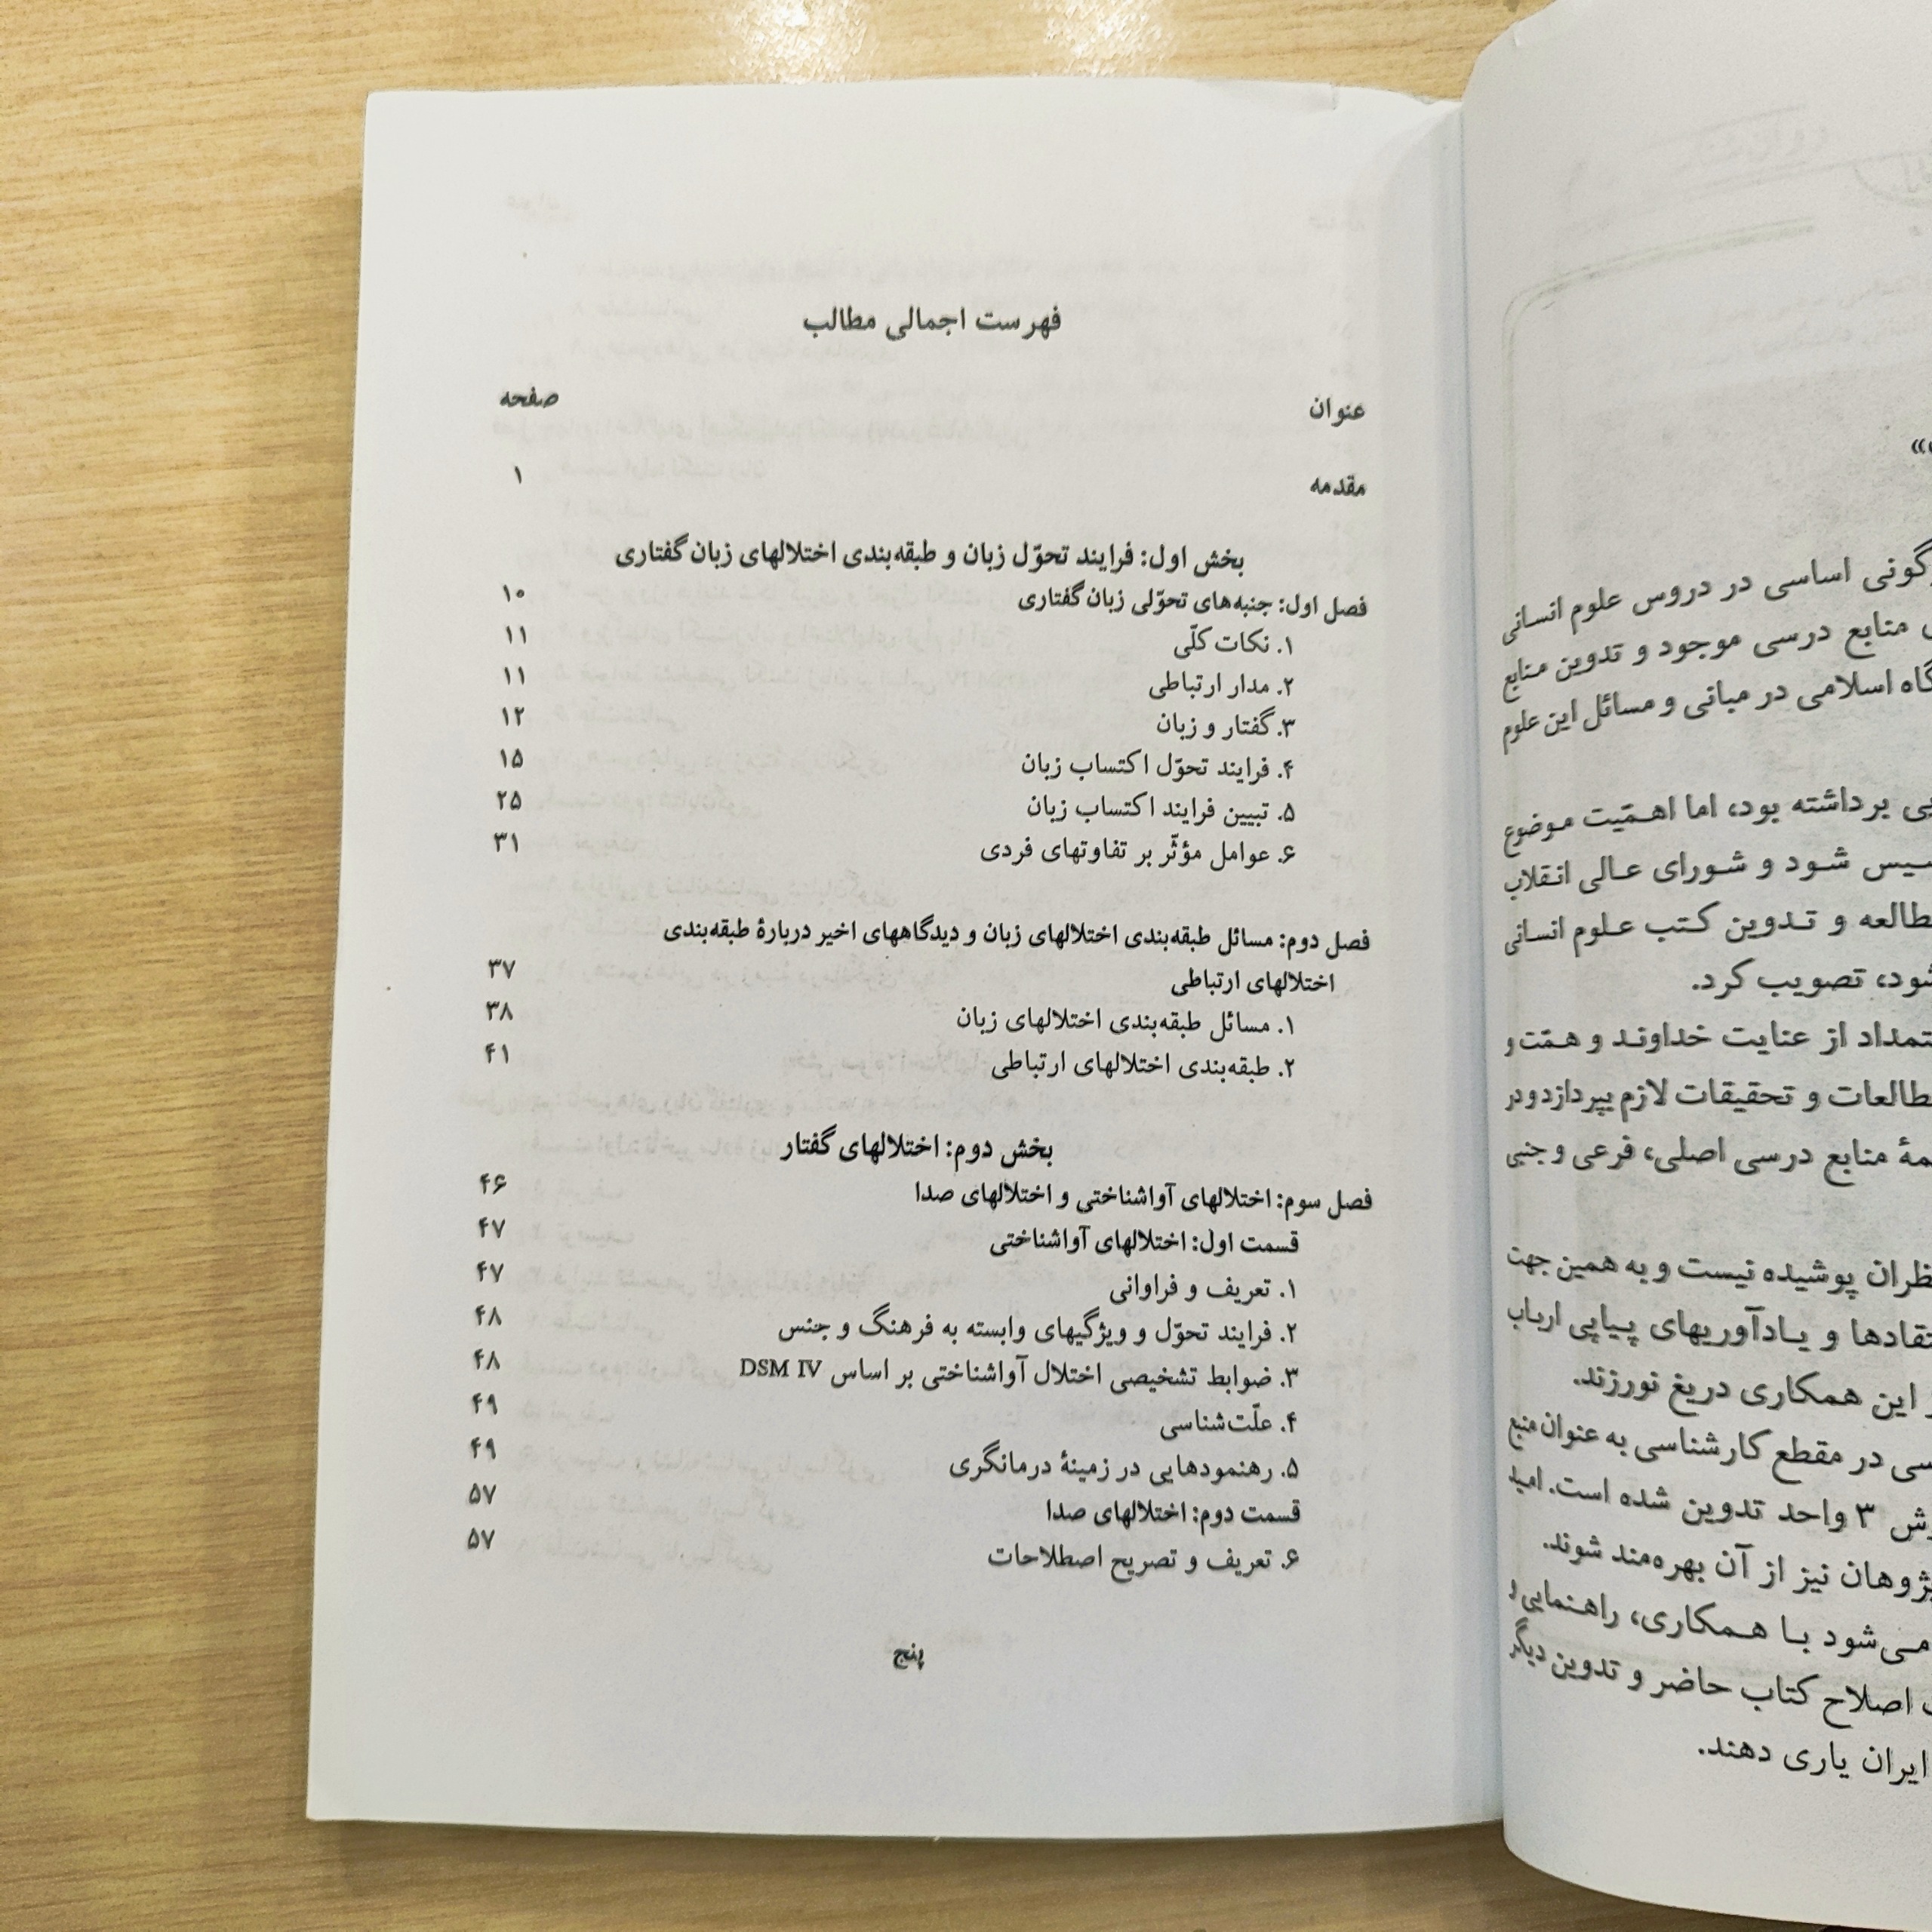 فهرست اجمالی مطالب
عنوان صفحه
مقدمه ۱
بخش اول: فرایند تحوّل زبان و طبقه‌بندی اختلالهای زبان گفتاری
فصل اول: جنبه‌های تحوّلی زبان گفتاری ۱۰
۱. نکات کلّی ۱۱
۲. مدار ارتباطی ۱۱
۳. گفتار و زبان ۱۲
۴. فرایند تحوّل اکتساب زبان ۱۵
۵. تبیین فرایند اکتساب زبان ۲۵
۶. عوامل مؤثّر بر تفاوتهای فردی ۳۱
فصل دوم: مسائل طبقه‌بندی اختلالهای زبان و دیدگاههای اخیر دربارهٔ طبقه‌بندی
اختلالهای ارتباطی ۳۷
۱. مسائل طبقه‌بندی اختلالهای زبان ۳۸
۲. طبقه‌بندی اختلالهای ارتباطی ۴۱
بخش دوم: اختلالهای گفتار
فصل سوم: اختلالهای آواشناختی و اختلالهای صدا ۴۶
قسمت اول: اختلالهای آواشناختی ۴۷
۱. تعریف و فراوانی ۴۷
۲. فرایند تحوّل و ویژگیهای وابسته به فرهنگ و جنس ۴۸
۳. ضوابط تشخیصی اختلال آواشناختی بر اساس DSM IV ۴۸
۴. علّت‌شناسی ۴۹
۵. رهنمودهایی در زمینهٔ درمانگری ۴۹
قسمت دوم: اختلالهای صدا ۵۷
۶. تعریف و تصریح اصطلاحات ۵۷
پنج
اساسی در دروس علوم انسانی
منابع درسی موجود و تدوین منابع
اسلامی در مبانی و مسائل این علوم
برداشته بود، اما اهمّیت موضوع
شود و شورای عالی انقلاب
و تدوین کتب علوم انسانی
تصویب کرد.
از عنایت خداوند و همّت و
و تحقیقات لازم بپردازد و در
منابع درسی اصلی، فرعی و جنبی
پوشیده نیست و به همین جهت
و یادآوریهای پیاپی ارباب
این همکاری دریغ نورزند.
در مقطع کارشناسی به عنوان منبع
۳ واحد تدوین شده است. امید
نیز از آن بهره‌مند شوند.
می‌شود با همکاری، راهنمایی و
اصلاح کتاب حاضر و تدوین دیگر
ایران یاری دهند.